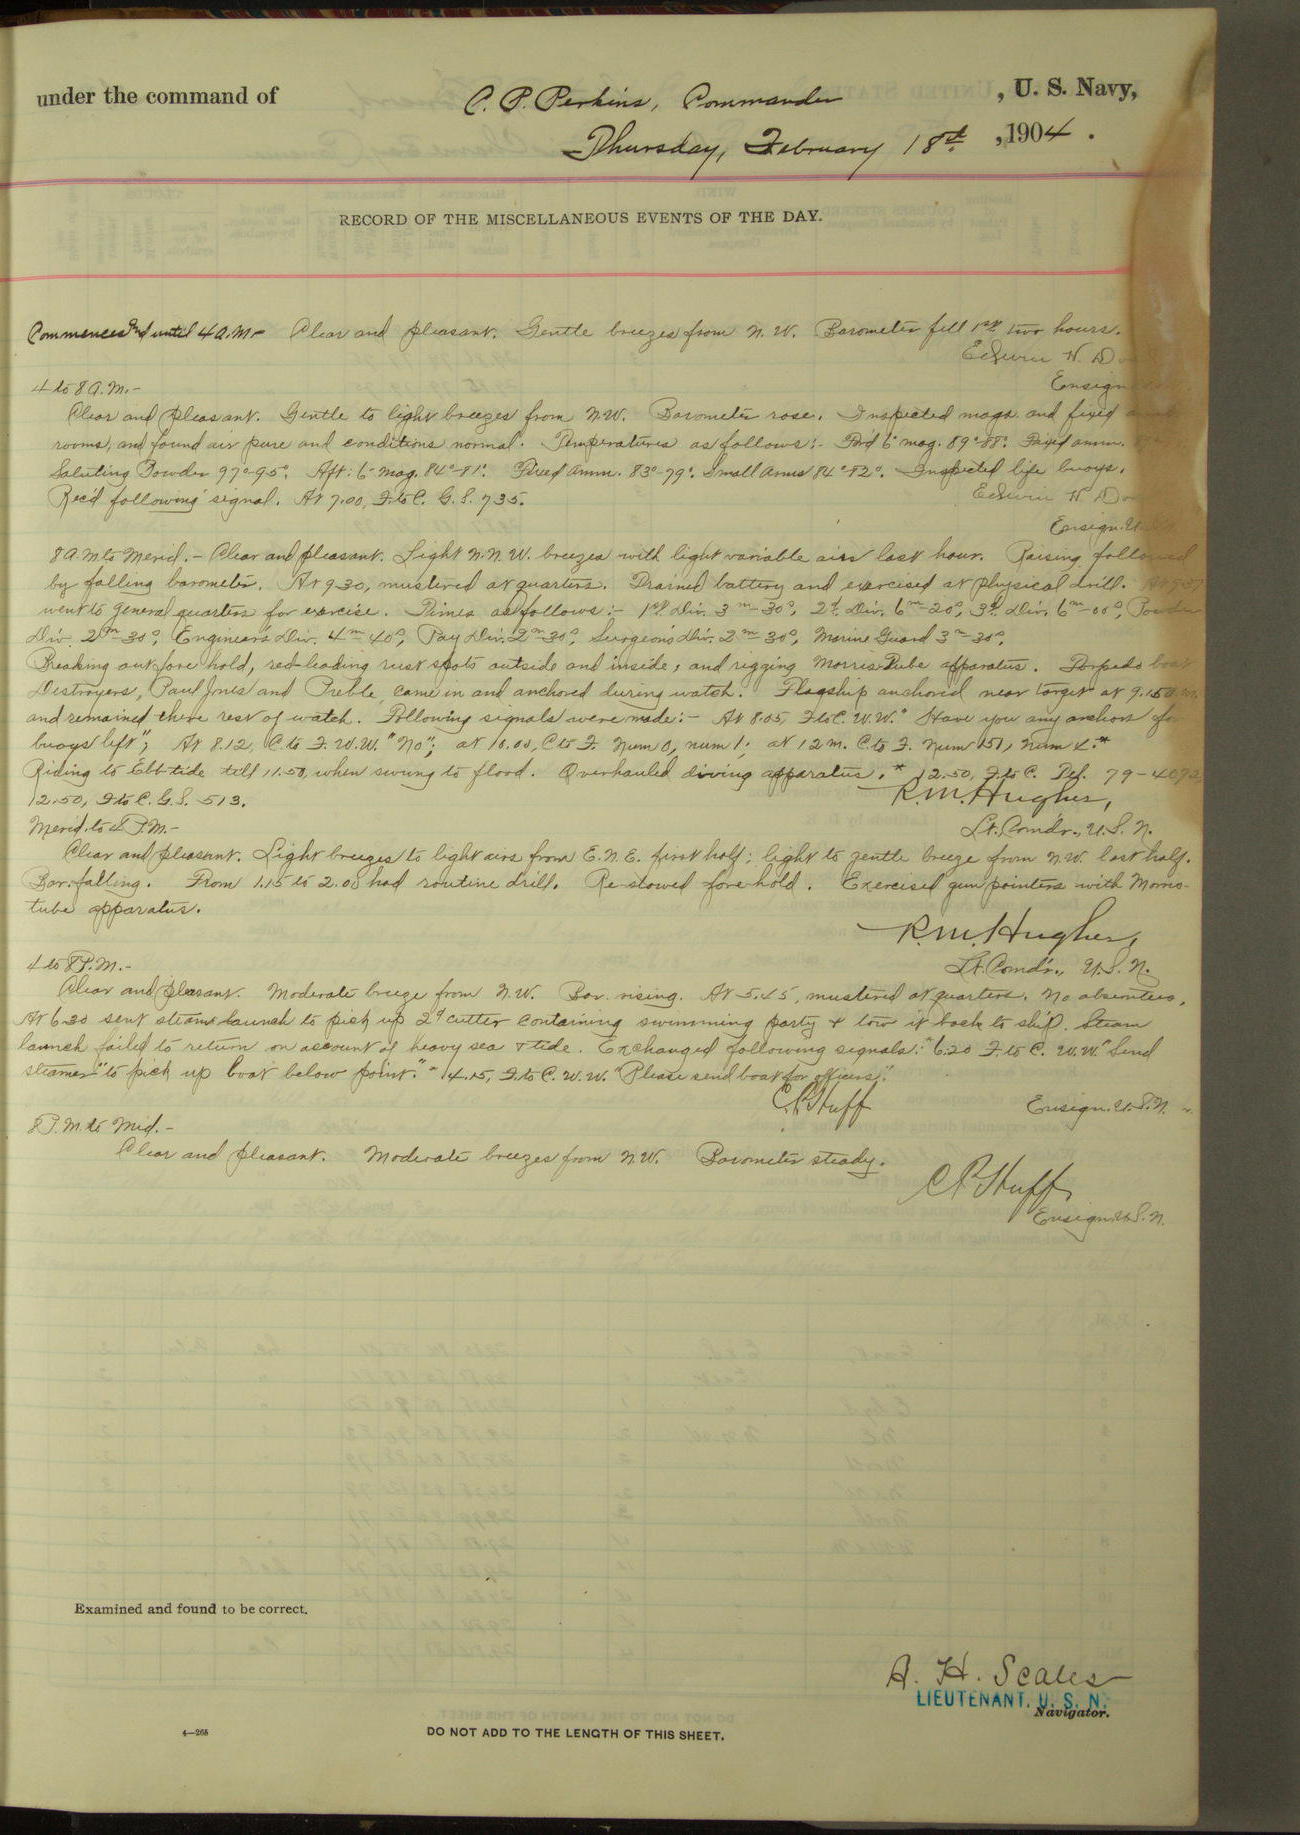 under the command of C. P. Perkins, Commander, U. S. Navy,
Thursday, February 18th, 1904.
RECORD OF THE MISCELLANEOUS EVENTS OF THE DAY.
Commences and until 4 A.M.- Clear and pleasant. Gentle breezes from N.W. Barometer fell 1st two hours.
Edwin H. Do
4 to 8 A.M.-
Ensign
Clear and pleasant. Gentle to light breezes from N.W. Barometer rose. Inspected mags. and fixed
rooms, and found air pure and conditions normal. Temperatures as follows:- Fw'd 6" mag. 89°-88°. Fixed amm.
Saluting Powder 97°-95°. Aft: 6" mag. 84°-81°. Fixed Amm. 83°-79°. Small Arms 84°-82°. Inspected life buoys.
Rec'd following signal. At 7.00, F. to C. G.S. 735.
Edwin H. Do
Ensign U.S.N.
8 A.M. to Merid.- Clear and pleasant. Light N.N.W. breezes with light variable airs last hour. Raising followed
by falling barometer. At 9.30, mustered at quarters. Drained battery and exercised at physical drill. At 9.37
went to general quarters for exercise. Times as follows:- 1st Div. 3m-30s, 2d. Div. 6m-20s, 3d. Div. 6m-00s, Powder
Div. 2m-30s, Engineer's Div. 4m-40s, Pay Div. 2m-30s, Surgeon's Div. 2m-30s, Marine Guard 3m-30s.
Breaking out fore hold, red-leading rust spots outside and inside, and rigging Morris Tube apparatus. Torpedo boat
Destroyers, Paul Jones and Preble came in and anchored during watch. Flagship anchored near target at 9.15 a.m.
and remained there rest of watch. Following signals were made:- At 8.05, F. to C. W.W. "Have you any anchors for
buoys left"; At 8.12, C. to F. W.W. "No"; at 10.00, C to F. Num 0, num 1; at 12 m. C. to F. Num 151, Num 4.*
Riding to Ebb tide till 11.50, when swung to flood. Overhauled diving apparatus. * 12.50, F. to C. Tel. 79-4072
12.50, F. to C. G.S. 513.
R.M. Hughes,
Lt. Comdr., U.S.N.
Merid. to 4 P.M.-
Clear and pleasant. Light breezes to light airs from E.N.E. first half; light to gentle breeze from N.W. last half.
Bar. falling. From 1.15 to 2.00 had routine drill. Re-stowed fore-hold. Exercised gun pointers with Morris-
tube apparatus.
R.M. Hughes,
Lt. Comdr., U.S.N.
4 to 8 P.M.-
Clear and pleasant. Moderate breeze from N.W. Bar. rising. At 5.45, mustered at quarters. No absentees.
At 6.30 sent steam launch to pick up 2d cutter containing swimming party & tow it back to ship. Steam
launch failed to return on account of heavy sea & tide. Exchanged following signals: "6.20 F. to C. W.W. "Send
steamer" to pick up boat below point." * 4.15, F. to C. W.W. "Please send boat for officers".
C.P. Huff
Ensign U.S.N.
8 P.M. to Mid.-
Clear and pleasant. Moderate breezes from N.W. Barometer steady.
C.P. Huff,
Ensign U.S.N.
Examined and found to be correct.
A. H. Scales
LIEUTENANT, U. S. N.
Navigator.
4-265
DO NOT ADD TO THE LENGTH OF THIS SHEET.